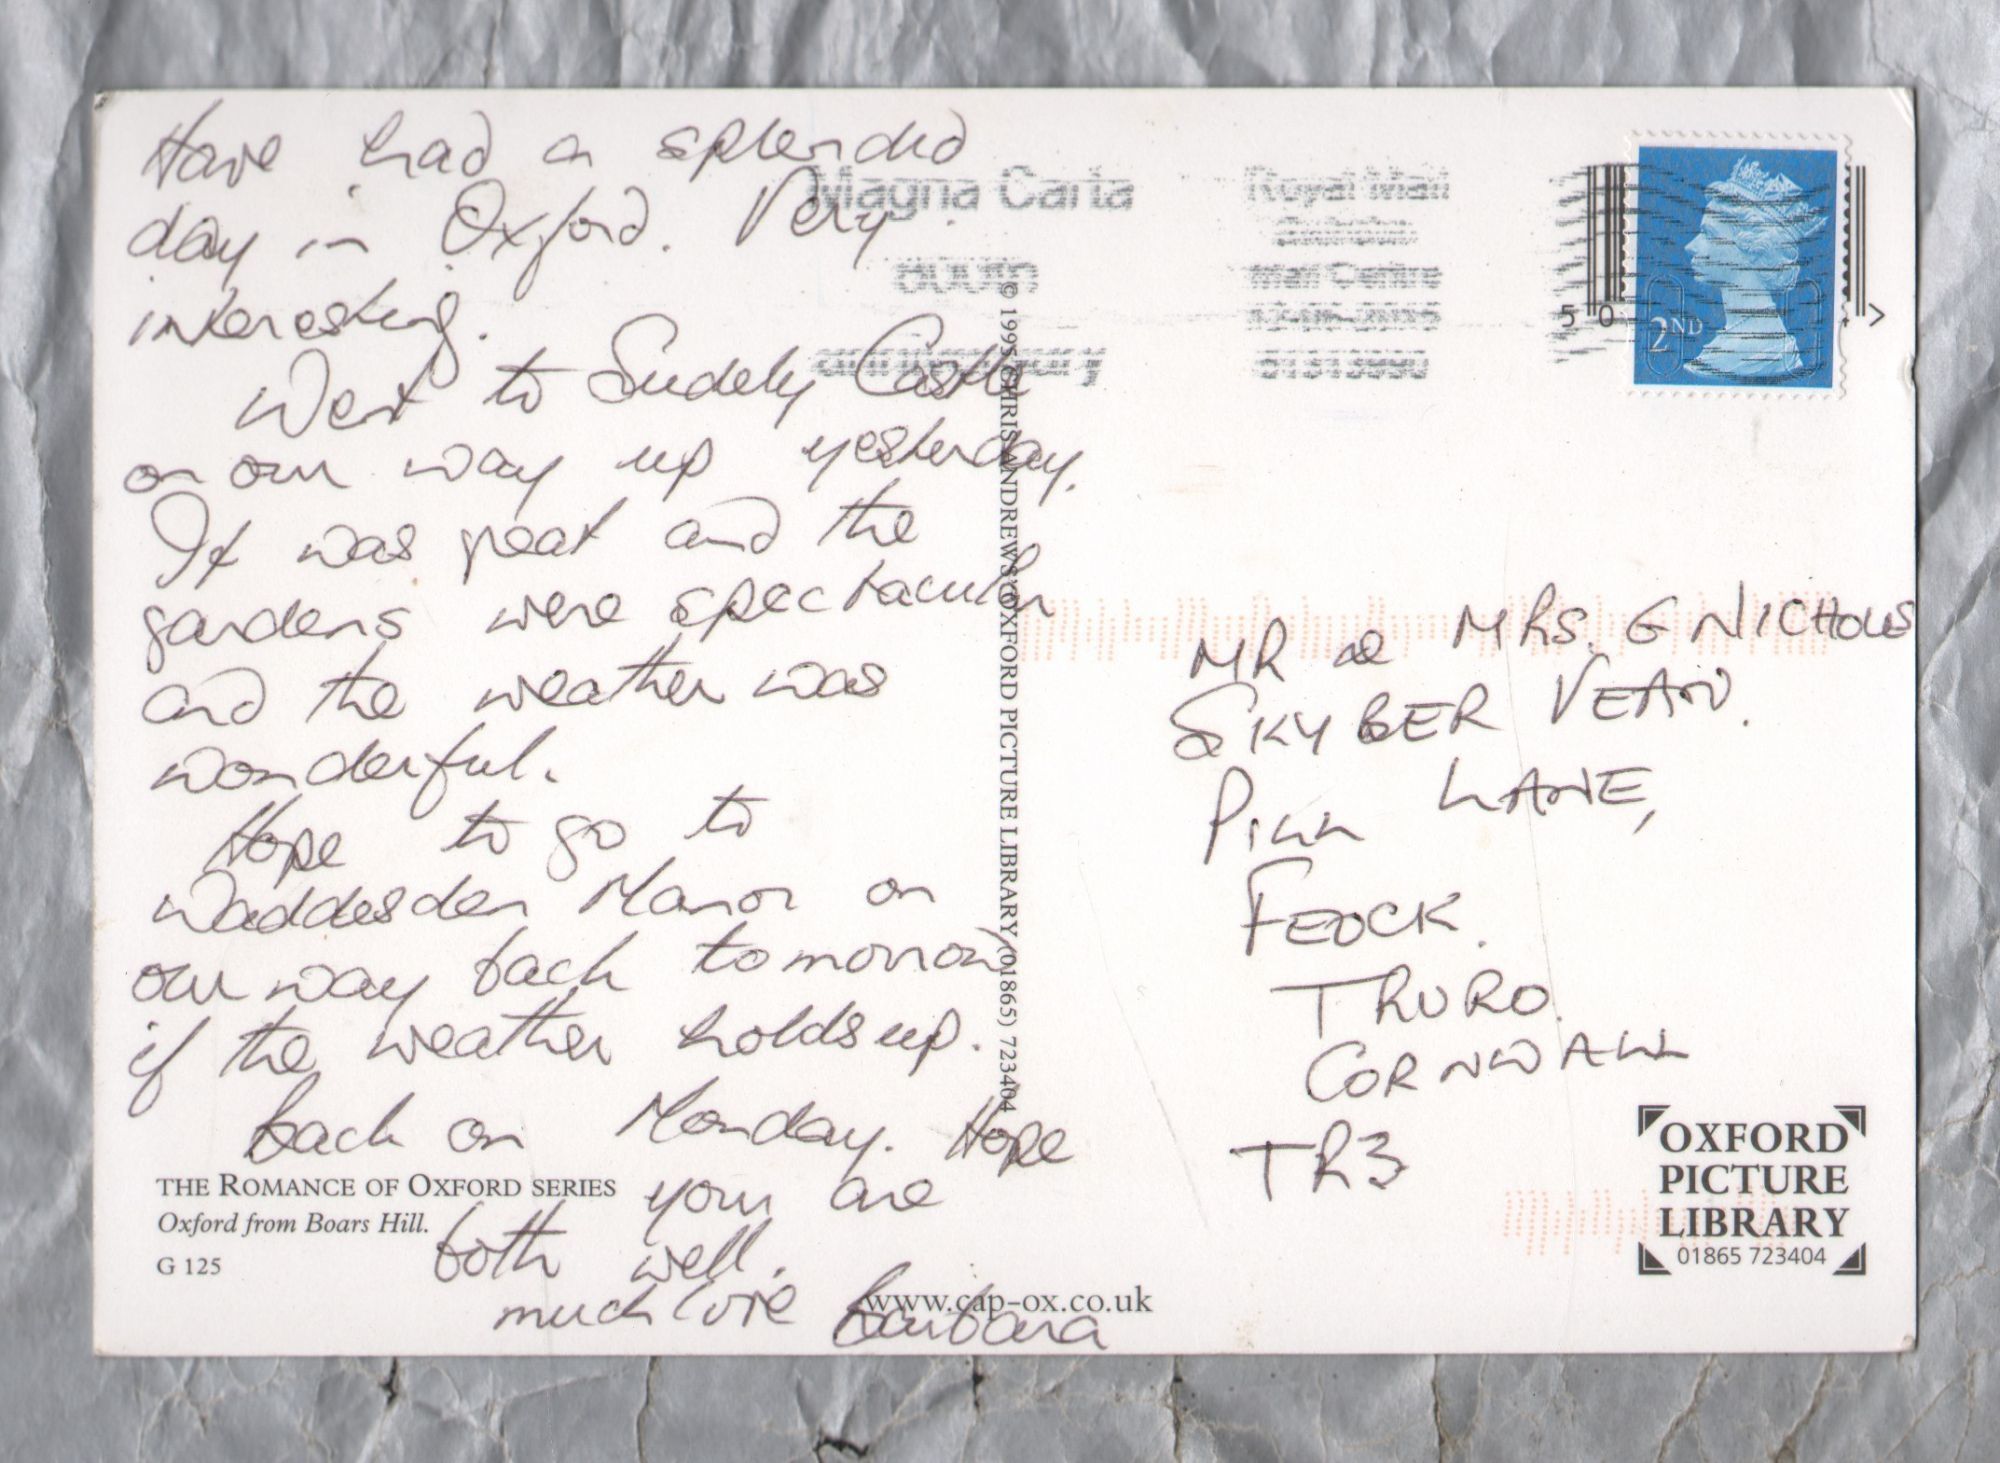 Have had a splendid
day in Oxford. Very
interesting.
Went to Sudely Castle
on our way up yesterday.
It was great and the
gardens were spectacular
and the weather was
wonderful.
Hope to go to
Waddesden Manor on
our way back tomorrow
if the weather holds up.
back on Monday. Hope
your are
both well.
much love Barbara
THE ROMANCE OF OXFORD SERIES
Oxford from Boars Hill.
G 125
© 1995 CHRIS ANDREWS OXFORD PICTURE LIBRARY (01865) 723404
www.cap-ox.co.uk
Magna Carta
800th
anniversary
Royal Mail
Mail Centre
2ND
MR & MRS. G NICHOLLS
SKYBER VEAN.
PILL LANE,
FEOCK.
TRURO.
CORNWALL
TR3
OXFORD
PICTURE
LIBRARY
01865 723404